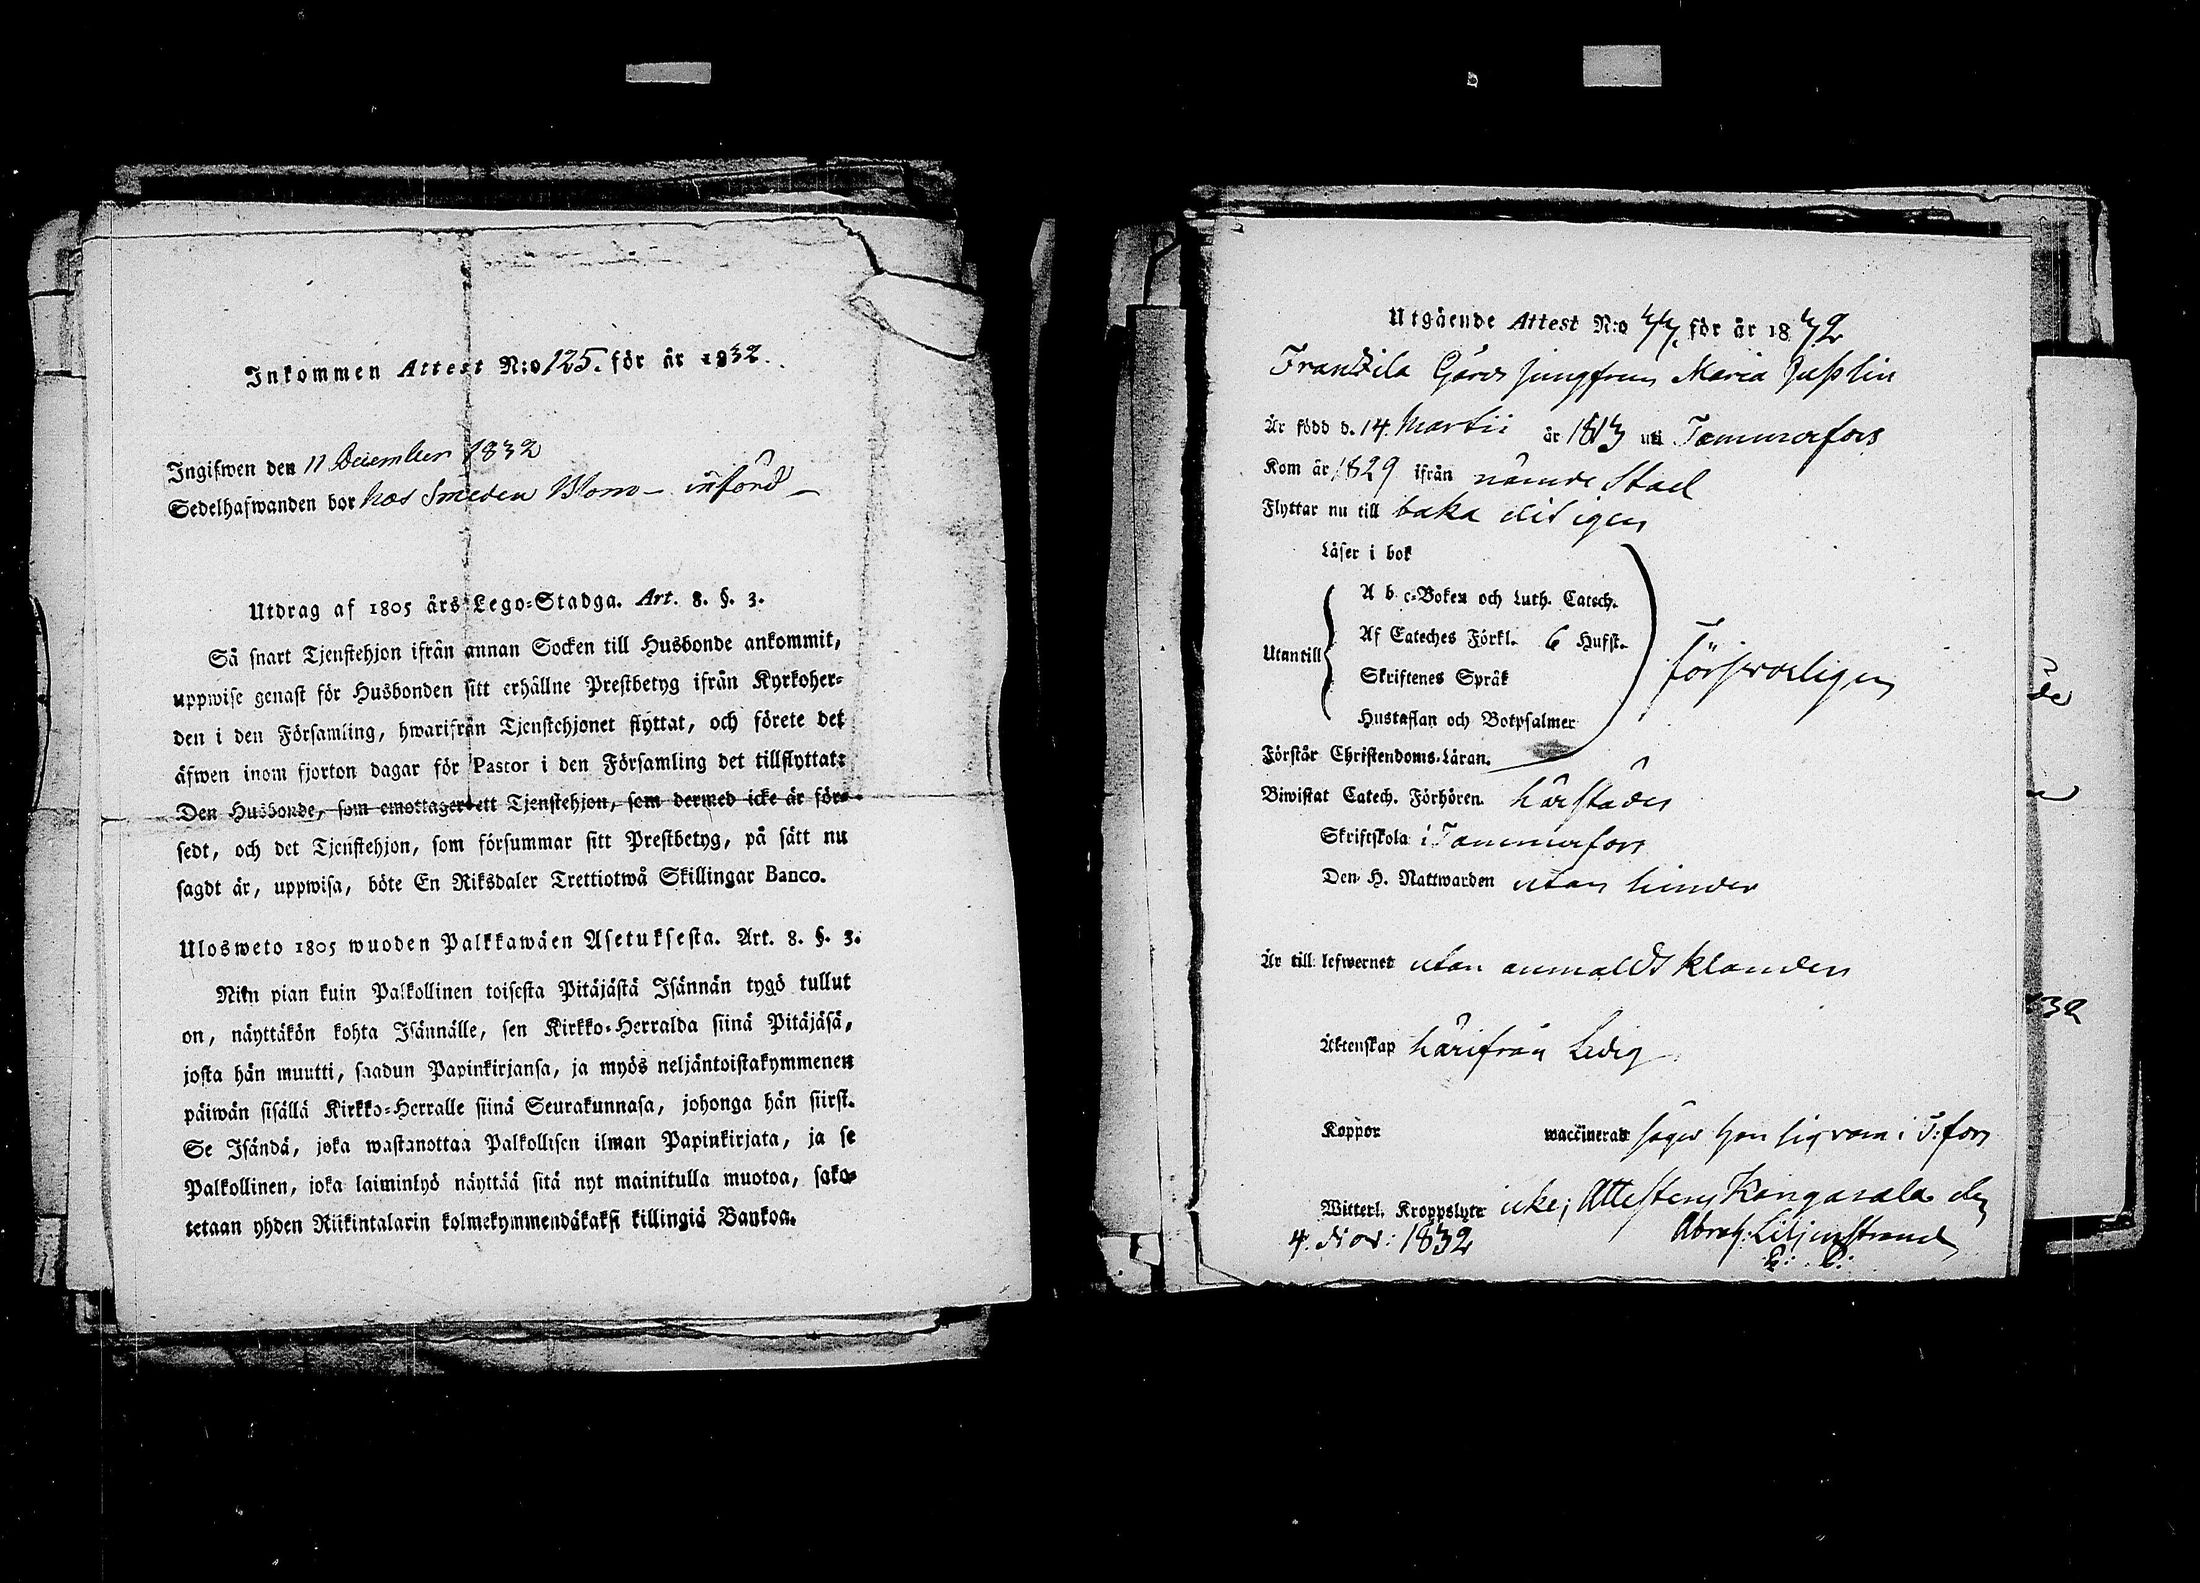 Inkommen Attest N:o 125. för år 1832.
Ingifwen den 11 December 1832
Sedelhafwanden bor hos Smeden Blom – införd –
Utdrag af 1805 års Lego-Stadga. Art. 8. §. 3.
Så snart Tjenstehjon ifrån annan Socken till Husbonde ankommit,
uppwise genast för Husbonden sitt erhållne Prestbetyg ifrån Kyrkoher-
den i den Församling, hwarifrån Tjenstehjonet flyttat, och förete det
äfwen inom fjorton dagar för Pastor i den Församling det tillflyttat:
Den Husbonde, som emottager ett Tjenstehjon, som dermed icke är för-
sedt, och det Tjenstehjon, som försummar sitt Prestbetyg, på sätt nu
sagdt är, uppwisa, böte En Riksdaler Trettiotwå Skillingar Banco.
Ulosweto 1805 wuoden Palkkawäen Asetuksesta. Art. 8. §. 3.
Niin pian kuin Palkollinen toisesta Pitäjästä Isännän tygö tullut
on, näyttäkön kohta Isännälle, sen Kirkko-Herralda siinä Pitäjäsä,
josta hän muutti, saadun Papinkirjansa, ja myös neljäntoistakymmenen
päiwän sisällä Kirkko-Herralle siinä Seurakunnasa, johonga hän siirst.
Se Isändä, joka wastanottaa Palkollisen ilman Papinkirjata, ja se
Palkollinen, joka laiminlyö näyttää sitä nyt mainitulla muotoa, sako-
tetaan yhden Riikintalarin kolmekymmendäkaksi killingiä Bankoa.
Utgående Attest N:o 77. för år 1832
Frantzila Gårds jungfrun Maria
Är född d. 14. Martii år 1813 uti Tammerfors
Kom år 1829 ifrån nämde Stad
Flyttar nu till baka dit igen
Läser i bok
Utantill
A b c-Boken och Luth. Catech.
Af Cateches Förkl. 6 Hufst.
Skriftenes Språk
Hustaflan och Botpsalmer
försvarligen
Förstår Christendoms-Läran.
Biwistat Catech. Förhören. härstädes
Skriftskola i Tammerfors
Den H. Nattwarden utan hinder
Är till lefwernet utan anmäldt klander
Äktenskap härifrån Ledig
Koppor waccinerad säger hon sig vara i T:fors
Witterl. Kroppslyte icke; Attesteras Kangasala den
4. Nov: 1832 Abrah: Liljenstrand
de
832